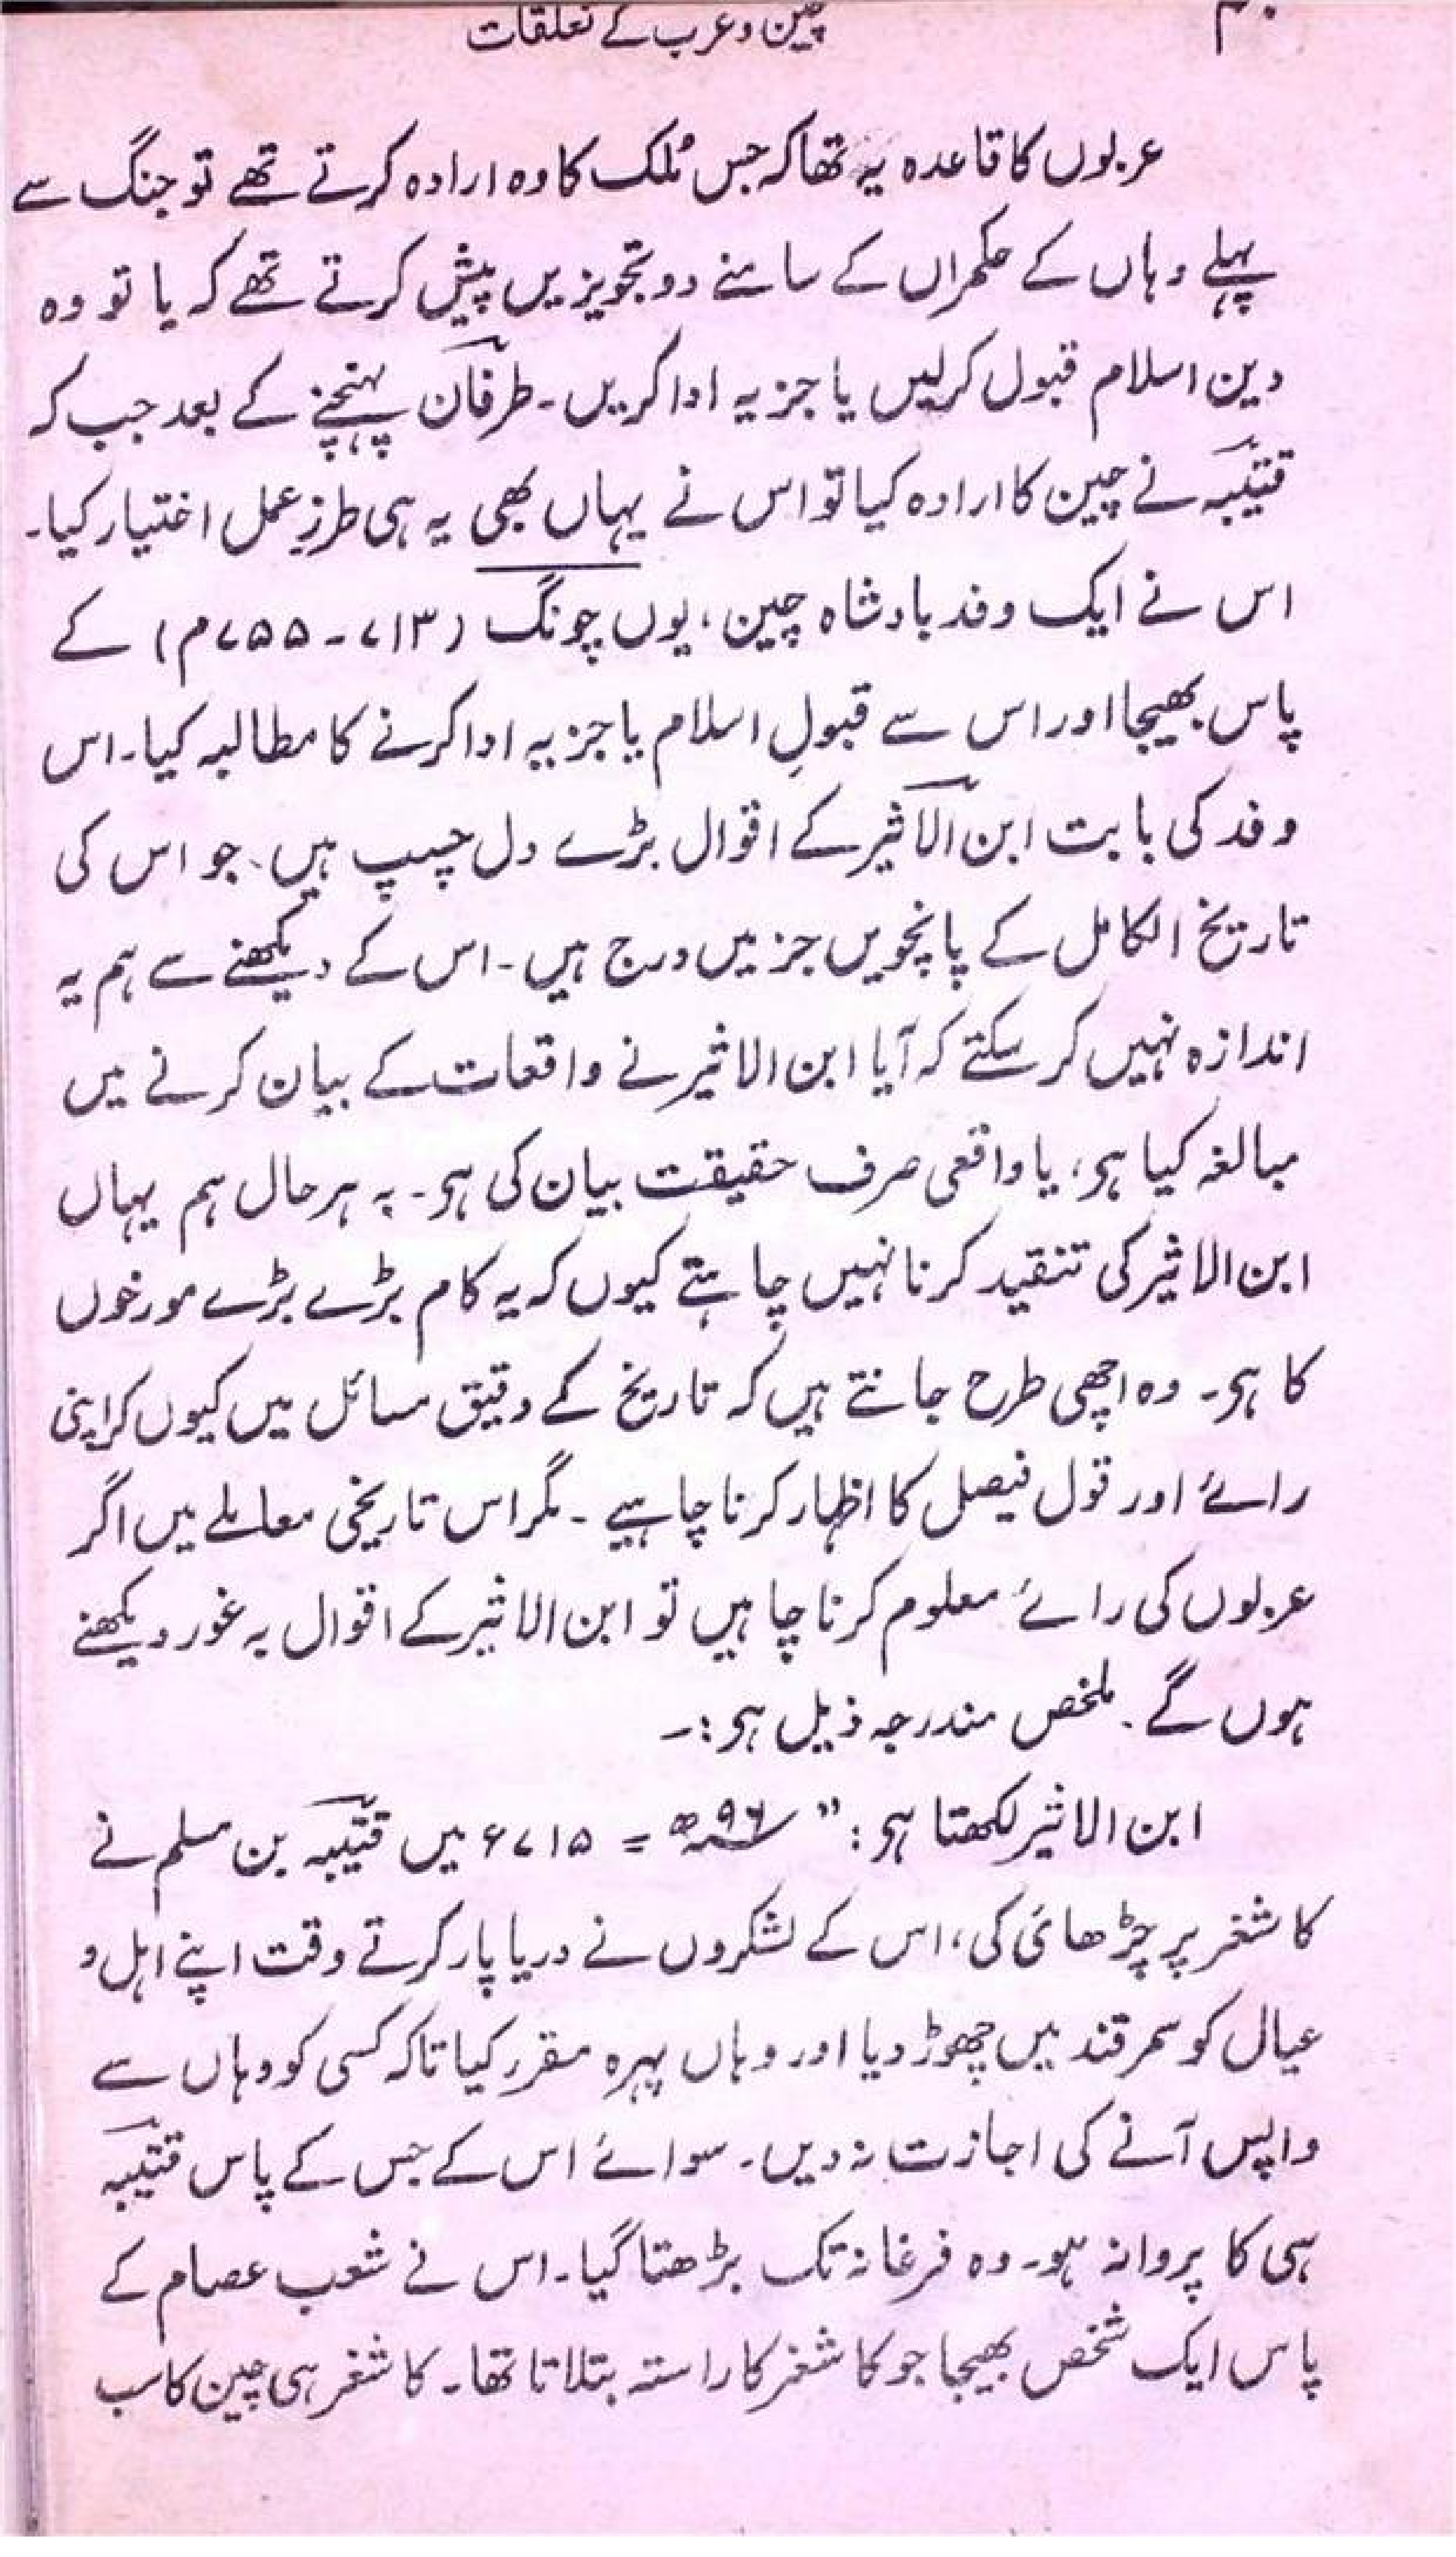 ۴۰ چین و عرب کے تعلقات
عربوں کا قاعدہ یہ تھا کہ جس مُلک کا وہ ارادہ کرتے تھے تو جنگ سے
پہلے وہاں کے حکمراں کے سامنے دو تجویزیں پیش کرتے تھے کہ یا تو وہ
دین اسلام قبول کرلیں یا جزیہ ادا کریں۔ طرفان پہنچنے کے بعد جب کہ
قتیبہ نے چین کا ارادہ کیا تو اس نے یہاں بھی یہ ہی طرزِ عمل اختیار کیا۔
اس نے ایک وفد بادشاہ چین، یوں چونگ (۷۱۳ - ۷۵۵م) کے
پاس بھیجا اور اس سے قبولِ اسلام یا جزیہ ادا کرنے کا مطالبہ کیا۔ اس
وفد کی بابت ابن الاثیر کے اقوال بڑے دل چسپ ہیں۔ جو اس کی
تاریخ الکامل کے پانچویں جز میں درج ہیں۔ اس کے دیکھنے سے ہم یہ
اندازہ نہیں کر سکتے کہ آیا ابن الاثیر نے واقعات کے بیان کرنے میں
مبالغہ کیا ہو، یا واقعی صرف حقیقت بیان کی ہو۔ بہ ہر حال ہم یہاں
ابن الاثیر کی تنقید کرنا نہیں چاہتے کیوں کہ یہ کام بڑے بڑے مورخوں
کا ہو۔ وہ اچھی طرح جانتے ہیں کہ تاریخ کے دقیق مسائل میں کیوں کر اپنی
رائے اور قول فیصل کا اظہار کرنا چاہیے۔ مگر اس تاریخی معاملے میں اگر
عربوں کی رائے معلوم کرنا چاہیں تو ابن الاثیر کے اقوال بہ غور دیکھنے
ہوں گے۔ ملخص مندرجہ ذیل ہو:۔
ابن الاثیر لکھتا ہو: "۹۶ھ = ۷۱۵ء میں قتیبہ بن مسلم نے
کاشغر پر چڑھائی کی، اس کے لشکروں نے دریا پار کرتے وقت اپنے اہل و
عیال کو سمرقند میں چھوڑ دیا اور وہاں پہرہ مقرر کیا تاکہ کسی کو وہاں سے
واپس آنے کی اجازت نہ دیں۔ سوائے اس کے جس کے پاس قتیبہ
ہی کا پروانہ ہو۔ وہ فرغانہ تک بڑھتا گیا۔ اس نے شعب عصام کے
پاس ایک شخص بھیجا جو کاشغر کا راستہ بتلاتا تھا۔ کاشغر ہی چین کا سب